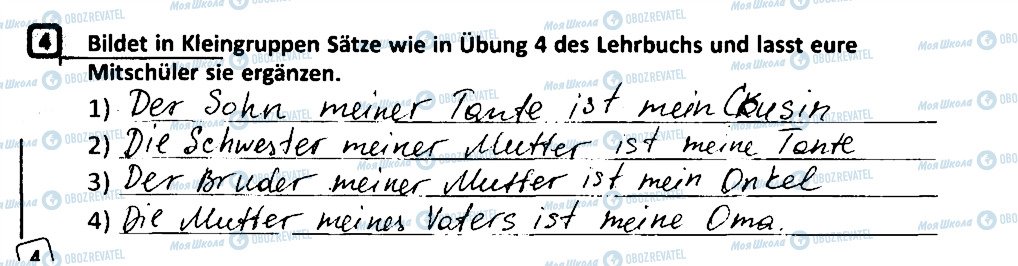 4 Bildet in Kleingruppen Sätze wie in Übung 4 des Lehrbuchs und lasst eure
Mitschüler sie ergänzen.
1) Der Sohn meiner Tante ist mein Cousin
2) Die Schwester meiner Mutter ist meine Tante
3) Der Bruder meiner Mutter ist mein Onkel
4) Die Mutter meines Vaters ist meine Oma.
4